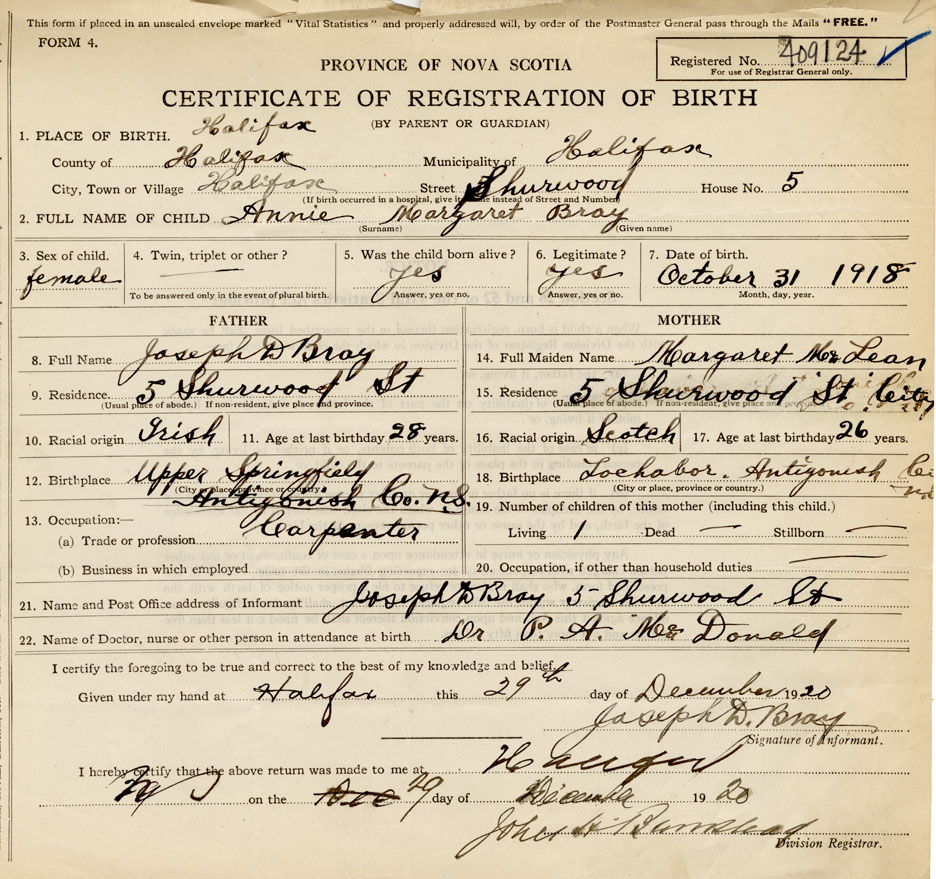 This form if placed in an unsealed envelope marked "Vital Statistics" and properly addressed will, by order of the Postmaster General pass through the Mails "FREE."
FORM 4.
Registered No. 409124 ✓
For use of Registrar General only.
PROVINCE OF NOVA SCOTIA
CERTIFICATE OF REGISTRATION OF BIRTH
(BY PARENT OR GUARDIAN)
1. PLACE OF BIRTH. Halifax
County of Halifax Municipality of Halifax
City, Town or Village Halifax Street 5 Shurwood House No. 5
(If birth occurred in a hospital, give its name instead of Street and Number)
2. FULL NAME OF CHILD Annie Margaret Bray
(Surname) (Given name)
3. Sex of child. 4. Twin, triplet or other? 5. Was the child born alive? 6. Legitimate? 7. Date of birth.
female — yes yes October 31 1918
To be answered only in the event of plural birth. Answer, yes or no. Answer, yes or no. Month, day, year.
FATHER
8. Full Name Joseph D Bray
9. Residence. 5 Shurwood St
(Usual place of abode.) If non-resident, give place and province.
10. Racial origin Irish 11. Age at last birthday 28 years.
12. Birthplace Upper Springfiely
(City or place, province or country.)
Antigonish Co. N.S.
13. Occupation:—
(a) Trade or profession Carpenter
(b) Business in which employed
MOTHER
14. Full Maiden Name Margaret Mc Lean
15. Residence 5 Shurwood St City
(Usual place of abode.) If non-resident, give place and province.
16. Racial origin Scotch 17. Age at last birthday 26 years.
18. Birthplace Lochabor. Antigonish Co
(City or place, province or country.) N.S.
19. Number of children of this mother (including this child.)
Living 1 Dead — Stillborn —
20. Occupation, if other than household duties —
21. Name and Post Office address of Informant Joseph D Bray 5 Shurwood St
22. Name of Doctor, nurse or other person in attendance at birth Dr P. A. Mc Donald
I certify the foregoing to be true and correct to the best of my knowledge and belief,
Given under my hand at Halifax this 29th day of December 1920
Joseph D. Bray
Signature of Informant.
I hereby certify that the above return was made to me at Halifax
N S on the Dec 29 day of December 1920
John
Division Registrar.